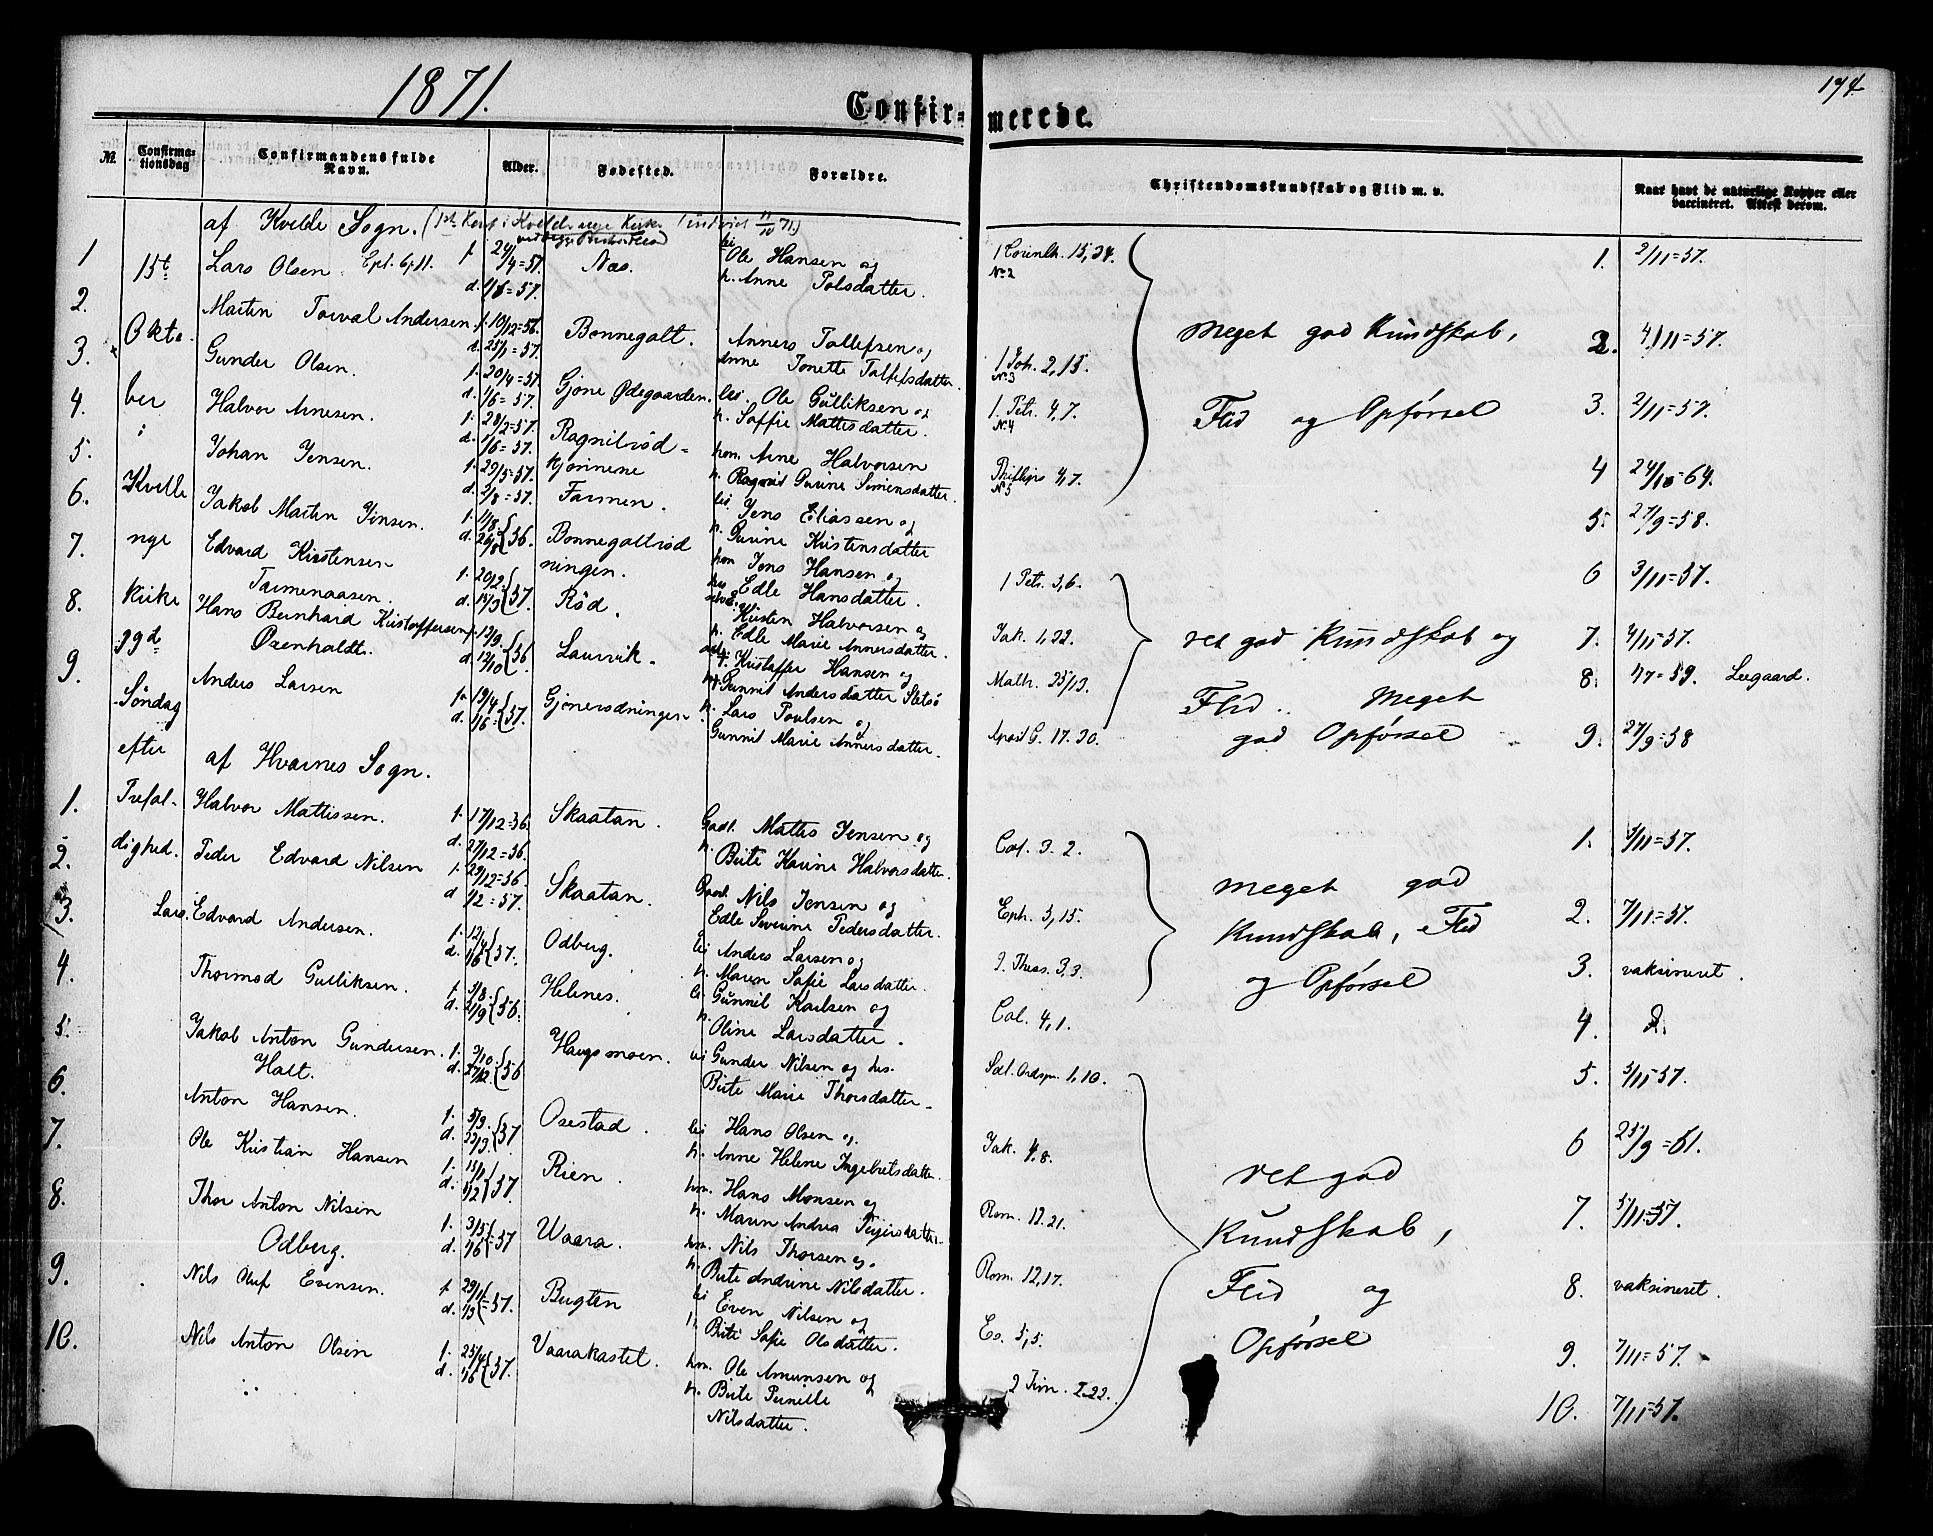 1871.
174
Confir-
merede.
No.
Confirma-
tionsdag
Confirmandens fulde
Navn.
Alder.
Fødested.
Forældre.
Christendomskundskab og Flid m. v.
Naar havt de naturlige Kopper eller
vaccineret. Attest derom.
af Kvelde Sogn.
15t
Okto
ber
i
Kvelle
nye
Kirke
Søndag
efter
Trefol-
dighed.
1
Lars Olsen
f. 24/4=57.
d. 1/6=57.
Næs.
lei Ole Hansen og
h. Anne Polsdatter.
1 Corinth. 15,24.
1. 2/11=57.
2.
Martin Torval Andersen
f. 10/12=56.
d. 25/1=57.
Bonnegolt.
Anners Tollefsen og
Anne Tonette Tollefsdatter.
1 Joh. 2,15.
2. 4/11=57.
3.
Gunder Olsen.
f. 20/4=57.
d. 1/6=57.
Gjone Ødegaarden.
lei. Ole Gulliksen og
h. Soffie Mattisdatter.
1. Petr. 4,7.
3. 2/11=57.
4.
Halvor Arnesen.
f. 28/2=57.
d. 1/6=57.
Ragnilrød-
kjønnene
hom Arne Halvorsen
h. Ragnil Gurine Simensdatter.
4,7.
4 24/10=64.
5.
Johan Jensen.
f. 29/5=57.
d. 2/8=57.
Farmen.
lei Jens Eliassen og
h. Gurine Kristensdatter
5. 27/9=58.
6.
Jakob Martin Jensen.
56.
Bonnegoltrød
ningen.
hom Jens Hansen og
Edle Hansdatter.
1 Petr. 3,6.
6 3/11=57.
7.
Edvard Kristensen
Farmenaasen.
f. 20/2
57.
Rød.
Kristen Halvorsen og
h. Edle Marie Annersdatter.
Jak. 1,22.
7. 4/11=57.
8.
Hans Bernhard Kristoffersen
Oxenholdt.
d. 12/10
56
Laurvik.
Kristoffer Hansen og
Gunnil Andersdatter
Math. 25,13.
8. 4/7=59. Leegaard.
9.
Anders Larsen
f. 19/4
d. 1/6
57.
Gjoneredningen
h. Lars Poulsen og
Gunnil Marie Annersdatter.
Apost G. 17.30.
9. 27/9=58
meget god Kundskab,
Flid og Opførsel
ret god Kundskab og
Flid. Meget
god Opførsel
af Hvarnes Sogn.
1.
Halvor Mattissen.
f. 17/12=56.
d. 27/12=56.
Skaatan.
Gadl. Mattis Jensen og
h. Birte Karine Halvorsdatter.
Col. 3. 2.
1. 4/11=57.
2.
Peder Edvard Nilsen
f. 29/12=56.
d. 1/2=57.
Skaatan.
Nils Jensen og
Edle Severine Pedersdatter.
Eph. 5,15.
2. 7/11=57.
3.
Lars Edvard Andersen.
57.
Odberg.
lei Anders Larsen og
h. Maren Sofie Larsdatter.
2. Thess. 3,3.
3. vaksineret.
4.
Thormod Gulliksen.
f. 3/8
d. 21/9
56.
Helenes.
lei Gunnil Karlsen og
h. Oline Larsdatter.
Col. 4,1.
4. D.
5.
Jakob Anton Gundersen.
Holt.
d. 27/12
56
Haugsmoen.
lei Gunder Nilsen og hus.
Birte Marie Thorsdatter.
Sal. Ordspr. 1,10.
5. 3/11=57.
6.
Anton Hansen.
57
Osestad.
lei Hans Olsen og
h. Anne Helene Ingebretsdatter.
Jak. 4.8.
6 25/9=61.
7.
Ole Kristian Hansen
57.
Rien.
hm. Hans Monsen og
Rom. 12.21.
7. 5/11=57.
8.
Thor Anton Nilsen
Odberg.
f. 3/5
d. 1/6
57
Vaara.
hm. Nils Thorsen og
h. Birte Andrine Nilsdatter.
Rom. 12,17.
8. vaksineret.
9.
Nils Oluf Evensen.
f. 29/11
d. 1/3
=57.
Bugten
lei Even Nilsen og
h. Birte Sofie Olsdatter.
Es. 5,5.
9. 7/11=57.
10.
Nils Anton Olsen
f. 25/4
d. 1/6
57.
Vaarakastet.
hm. Ole Amunsen og
h. Birte Pernille
Nilsdatter.
2 Tim. 2.22.
10. 7/11=57.
meget god
Kundskab, Flid
og Opførsel
ret god
Kundskab,
Flid og
Opførsel